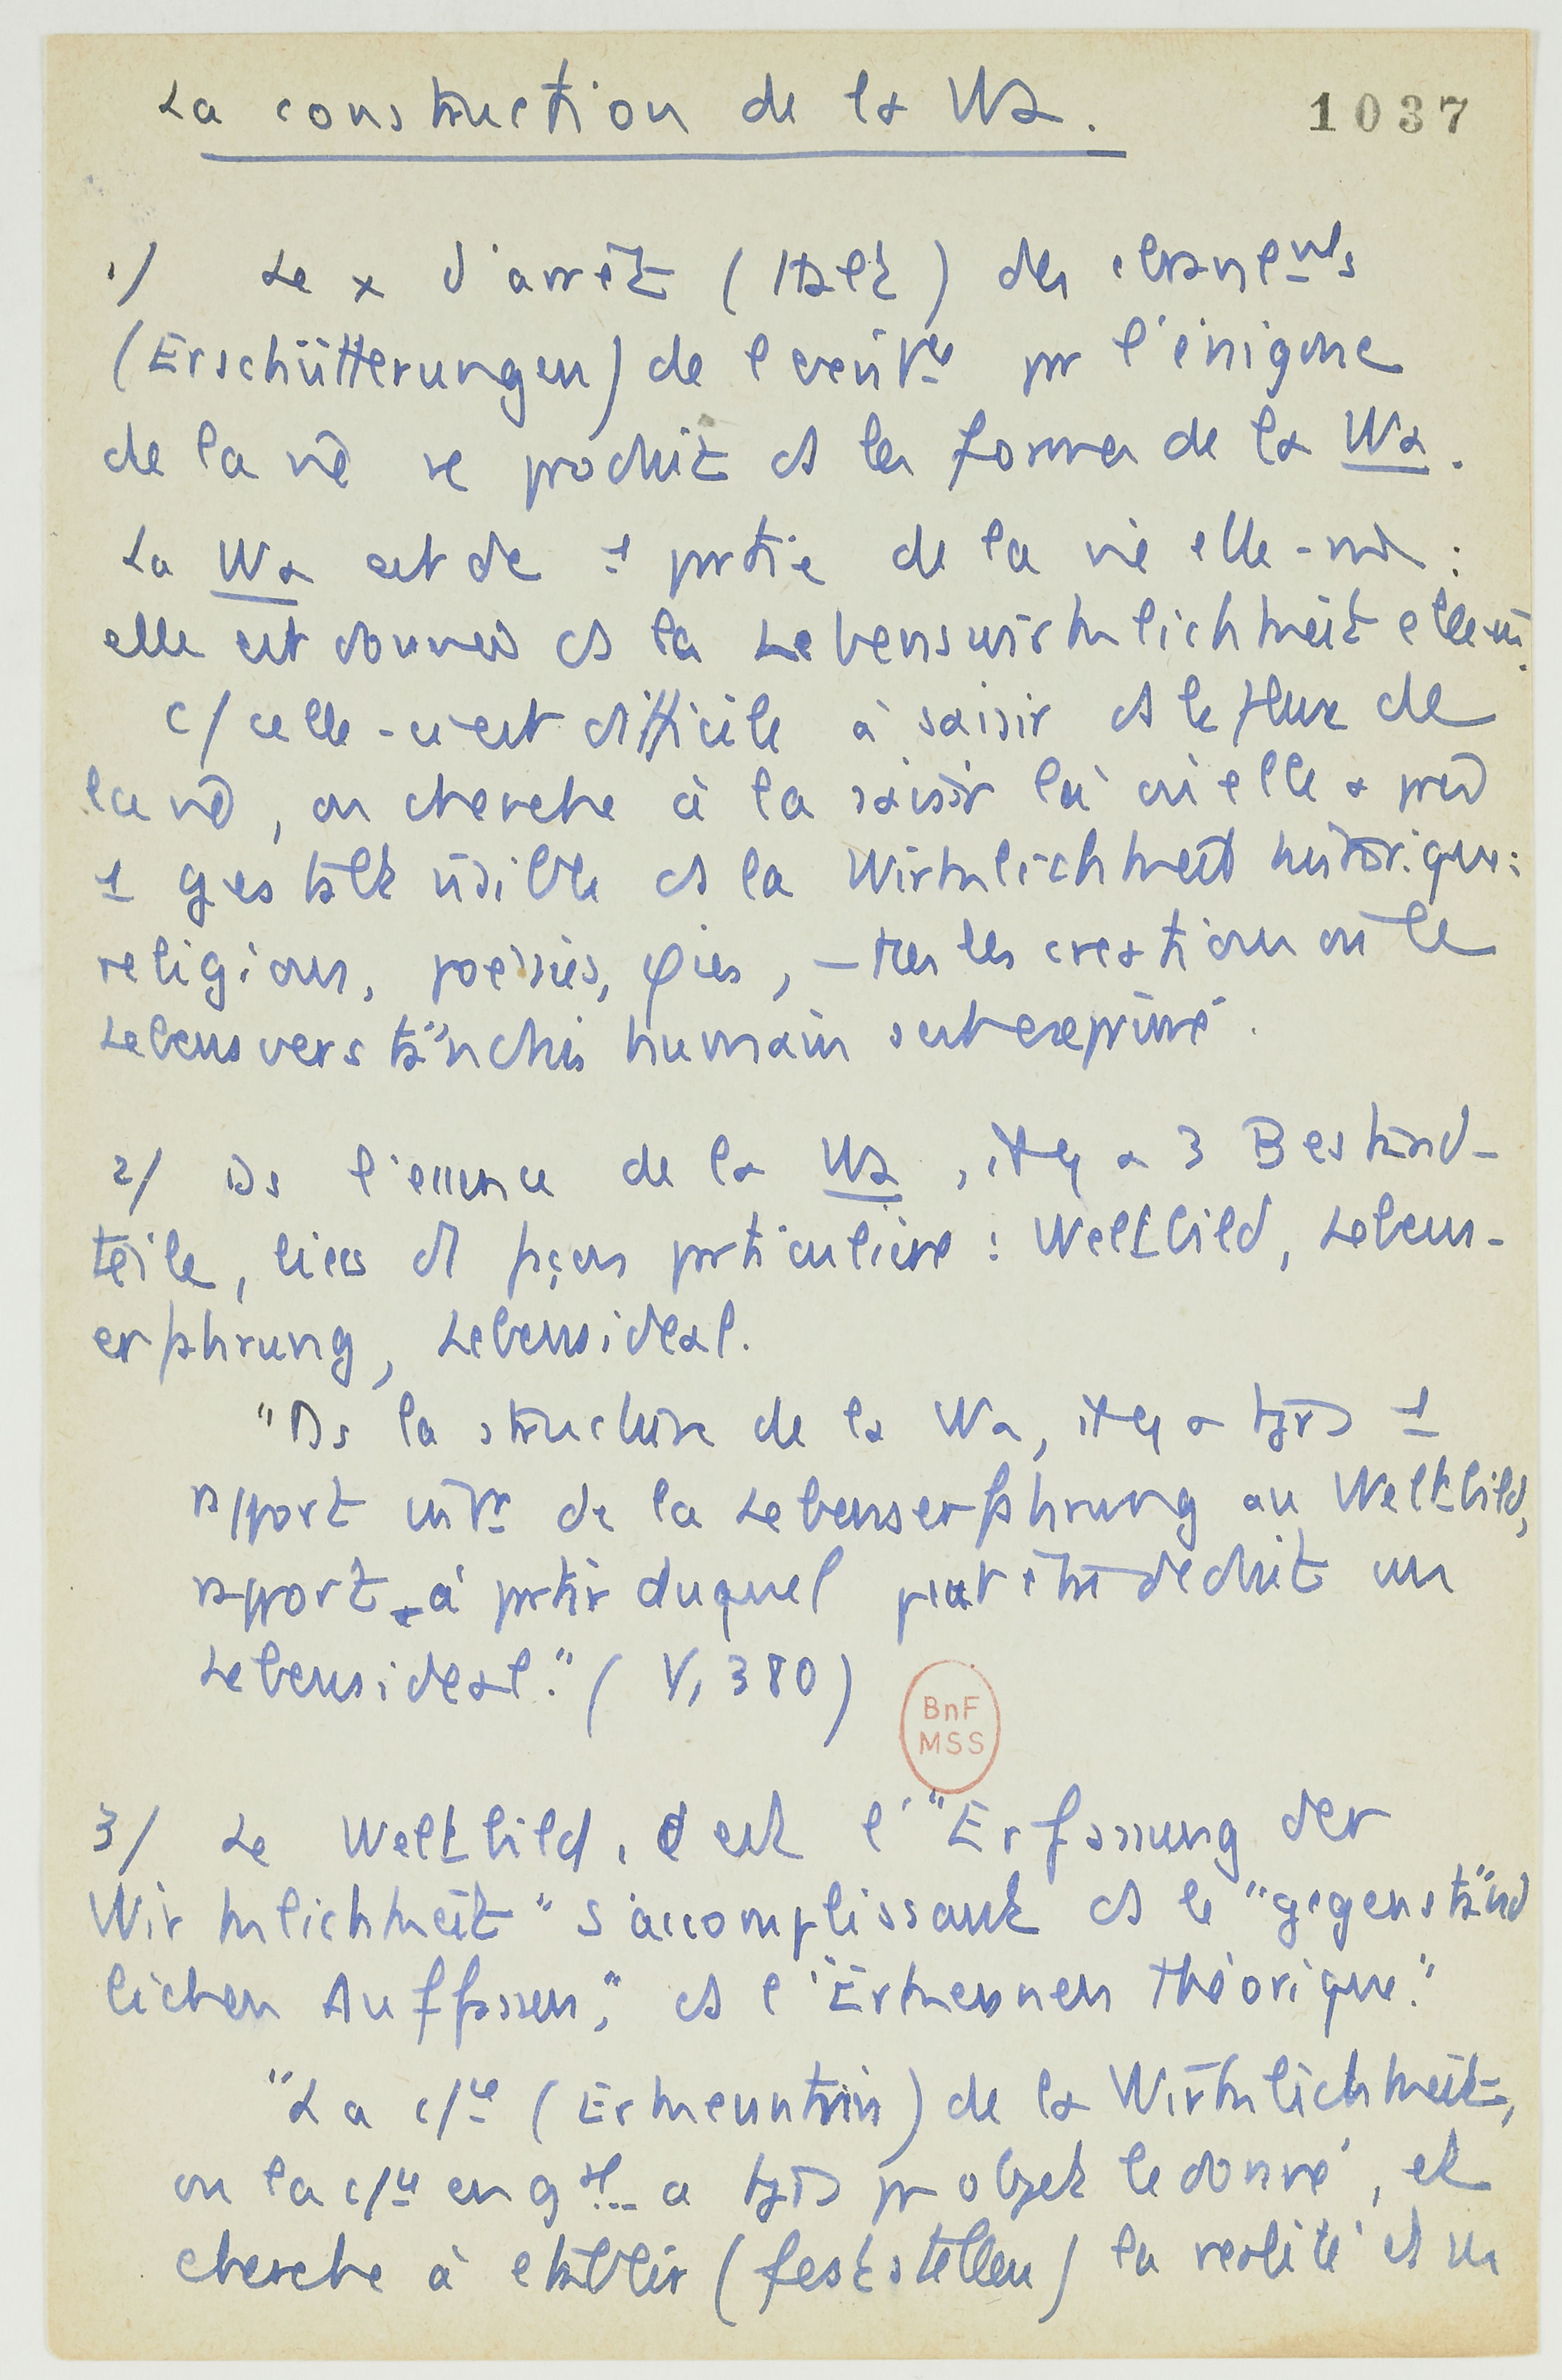 La construction de la Wa.
1037
1/ Le x d'arrêt (Halt) des ebranlemts
(Erschütterungen) de l'existce pr l'énigme
de la vie se produit ds les formes de la Wa.
La Wa est dc 1 partie de la vie elle-mm :
elle est donnée ds la Lebenswirklichkeit elle-m.
c/ celle-ci est difficile à saisir ds le flux de
la vie, on cherche à la saisir là où elle a pris
1 gestalt visible ds la Wirklichkeit historique :
religions, poésies, φies, – ttes les creations où le
Lebensverständnis humain s'est exprimé.
2/ Ds l'essence de la Wa, il y a 3 Bestand-
teile, liées ds façon particulière : Weltbild, Lebens-
erfahrung, Lebensideal.
"Ds la structure de la Wa, il y a tjrs 1
rapport intr de la Lebenserfahrung au Weltbild,
rapport à partir duquel peut être déduit un
Lebensideal." (V, 380)
BnF
MSS
3/ Le Weltbild, c'est l'"Erfassung der
Wirklichkeit" s'accomplissant ds le "gegenständ
lichen Auffassen", ds l'"Erkennen théorique."
"La c/ce (Erkenntnis) de la Wirklichkeit,
ou la c/ce en gal a tjrs pr objet le donné, et
cherche à etablir (feststellen) la realité ds un